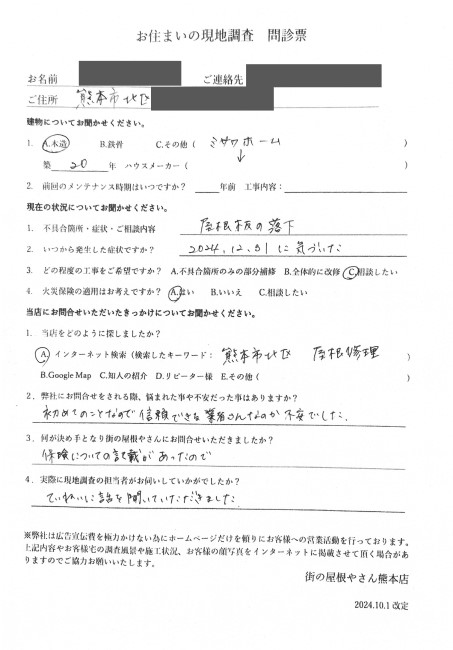 お住まいの現地調査　問診票
お名前　ご連絡先
ご住所　熊本市北区
建物についてお聞かせください。
1. A.木造　B.鉄骨　C.その他（ ミサワホーム ）
↓
築 20 年　ハウスメーカー（　）
2. 前回のメンテナンス時期はいつですか？ ＿＿年前　工事内容：
現在の状況についてお聞かせください。
1. 不具合箇所・症状・ご相談内容　屋根板の落下
2. いつから発生した症状ですか？　2024.12.31に気づいた
3. どの程度の工事をご希望ですか？ A.不具合箇所のみの部分補修　B.全体的に改修　C.相談したい
4. 火災保険の適用はお考えですか？ A.はい　B.いいえ　C.相談したい
当店にお問合せいただいたきっかけについてお聞かせください。
1. 当店をどのように探しましたか？
A. インターネット検索（検索したキーワード： 熊本市北区　屋根修理 ）
B.Google Map　C.知人の紹介　D.リピーター様　E.その他（　）
2. 弊社にお問合せをされる際、悩まれた事や不安だった事はありますか？
初めてのことなので信頼できる業者さんなのか不安でした.
3. 何が決め手となり街の屋根やさんにお問合せいただきましたか？
保険についての記載があったので
4. 実際に現地調査の担当者がお伺いしていかがでしたか？
ていねいに話を聞いていただきました
※弊社は広告宣伝費を極力かけない為にホームページだけを頼りにお客様への営業活動を行っております。
上記内容やお客様宅の調査風景や施工状況、お客様の顔写真をインターネットに掲載させて頂く場合があ
りますのでご協力お願いいたします。
街の屋根やさん熊本店
2024.10.1 改定